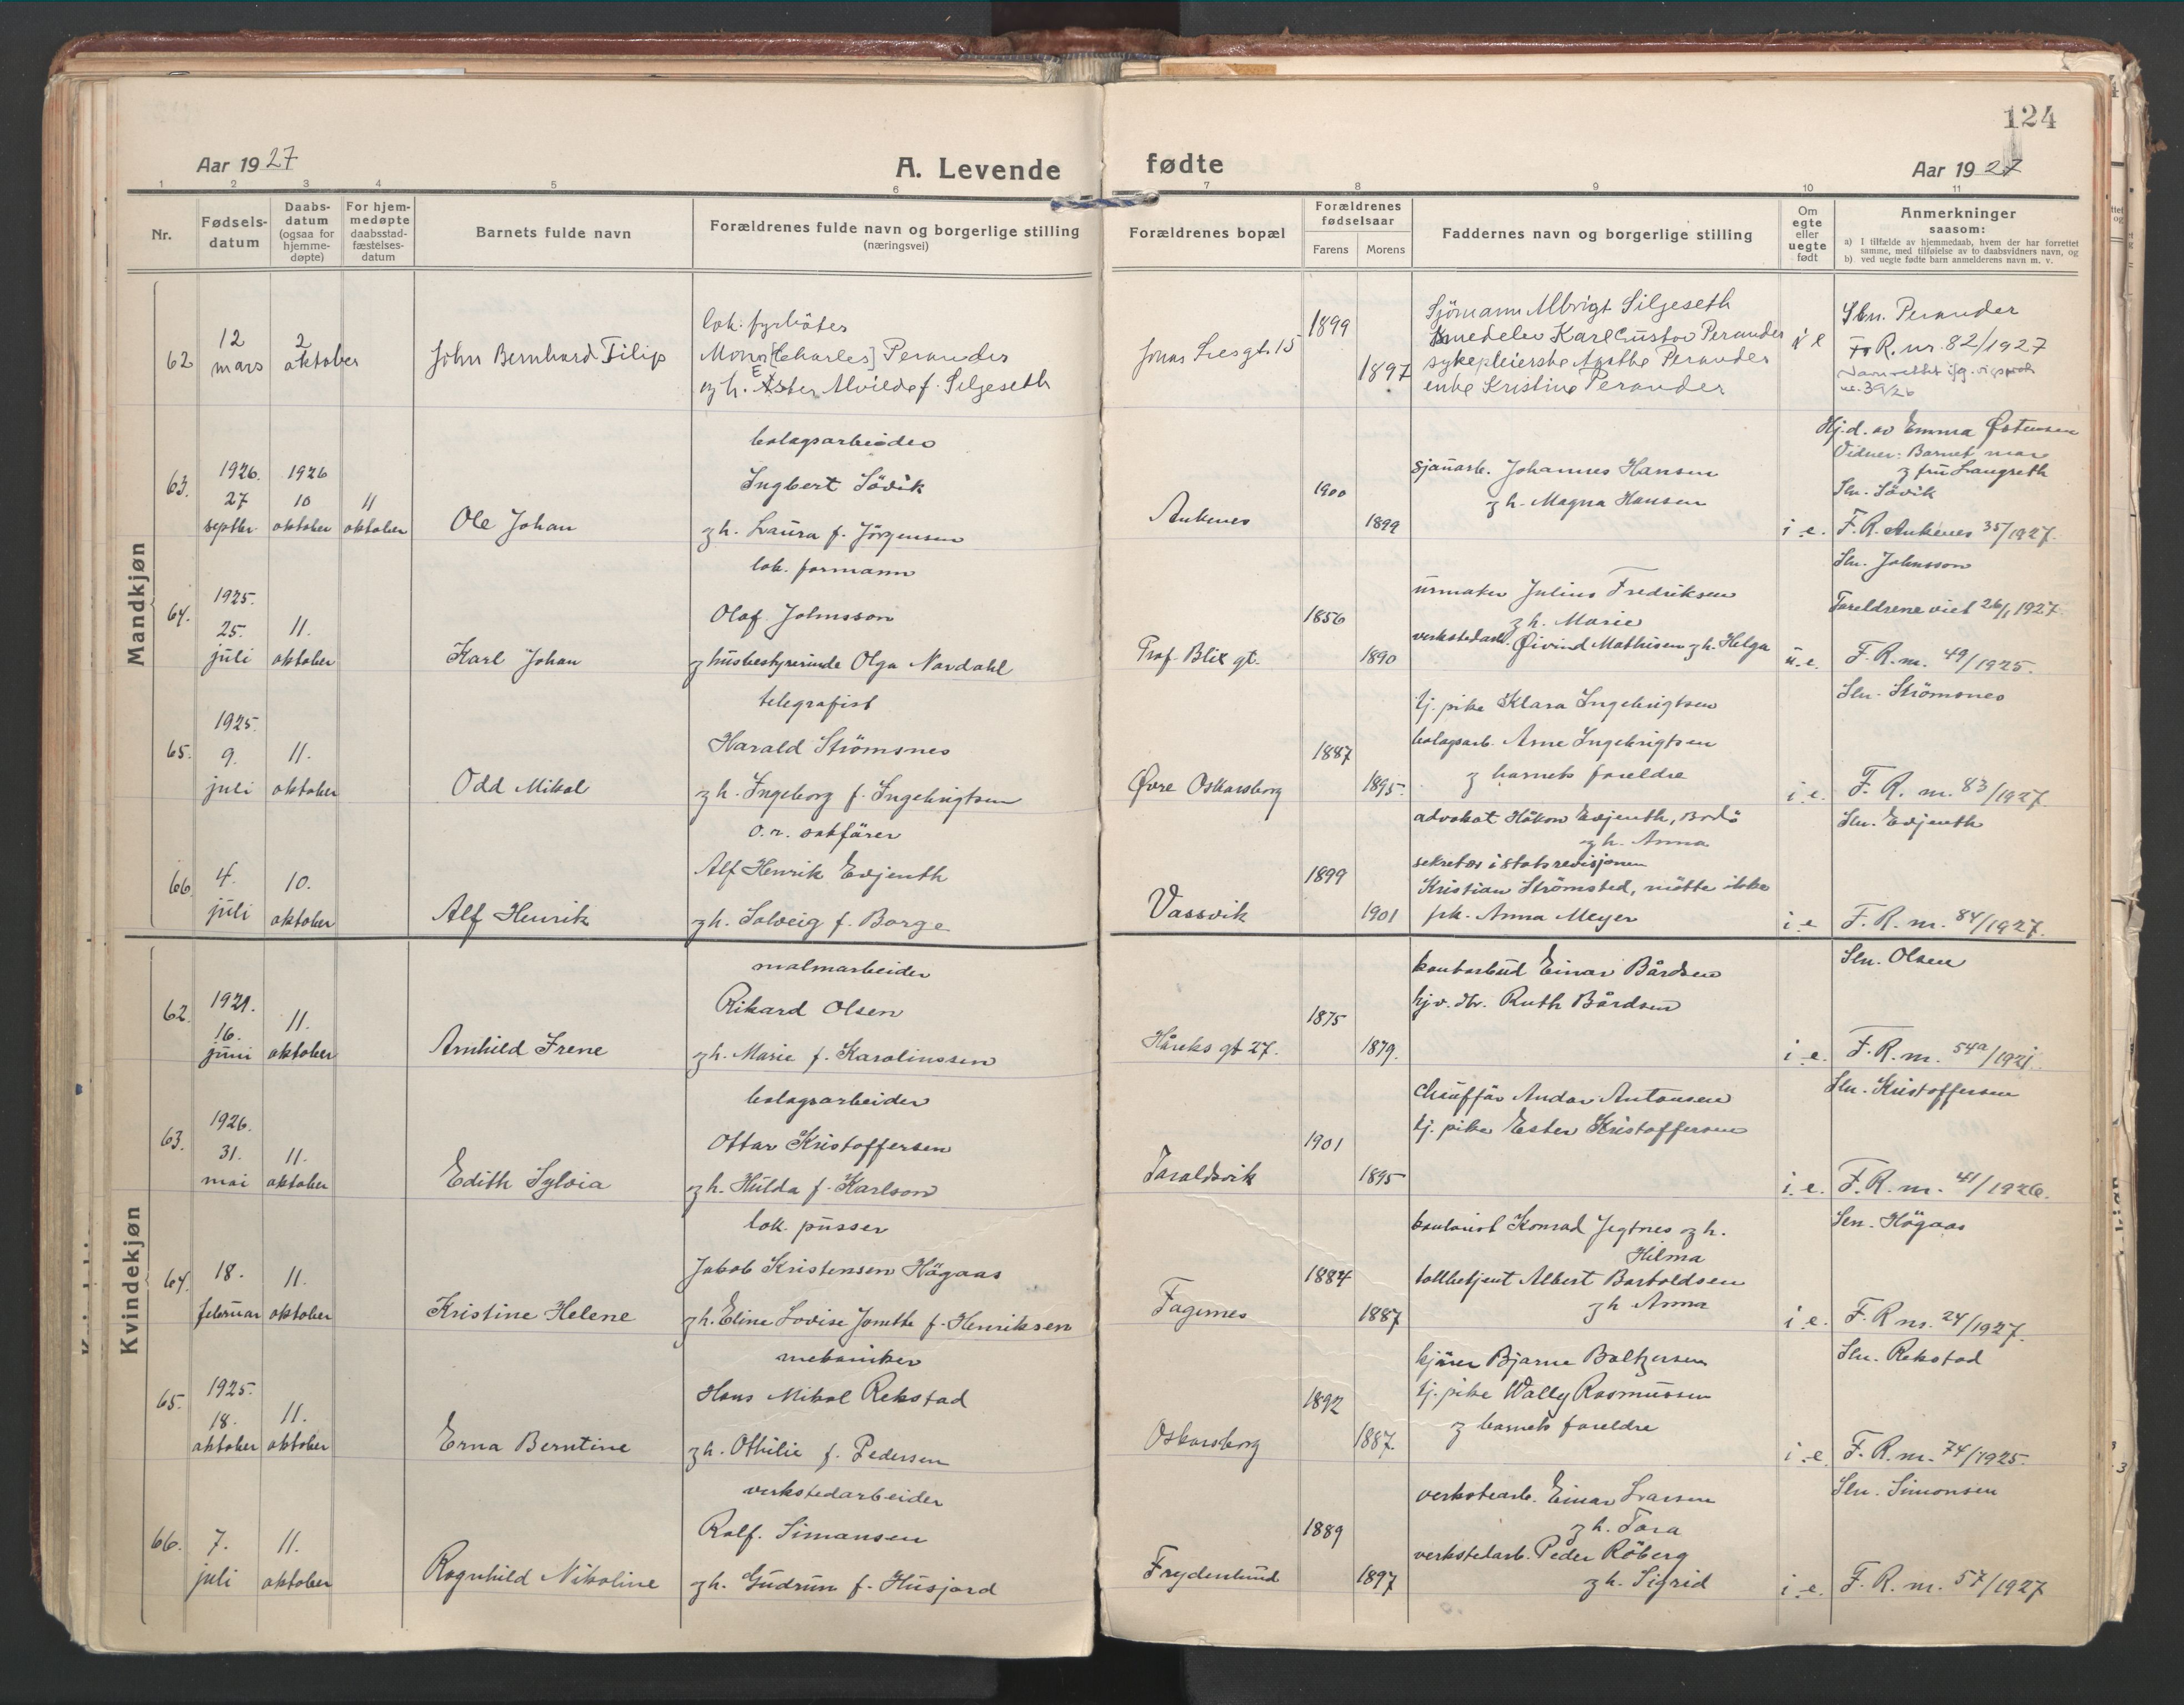 124
Aar 1927
A. Levende fødte
Aar 1927
1 2 3 4 5 6 7 8 9 10 11
Nr.
Fødsels-
datum
Daabs-
datum
(ogsaa for
hjemme-
døpte)
For hjem-
medøpte
daabsstad-
fæstelses-
datum
Barnets fulde navn
Forældrenes fulde navn og borgerlige stilling
(næringsvei)
Forældrenes bopæl
Forældrenes
fødselsaar
Farens
Morens
Faddernes navn og borgerlige stilling
Om
egte
eller
uegte
født
Anmerkninger
saasom:
a) I tilfælde av hjemmedaab, hvem der har forrettet
samme, med tilføielse av to daabsvidners navn, og
b) ved uegte fødte barn anmelderens navn m. v.
Mandkjøn
62
12
mars
2
oktober
John Bernhard Filip
lok. fyrböter
[Charles] Perander
g h. Ester Alvilde f. Siljeseth
Jonas Liesgt. 15
1899
1897
Sjömann Albrigt Siljeseth
Karl Gustav Perander
sykepleierske Agathe Perander
enke Kristine Perander
i e
Sln. Perander
F R. nr. 82/1927
nr. 39/26
63.
1926.
27
septbr.
1926
10
oktober
11
oktober
Ole Johan
bolagsarbeider
Ingbert Sövik
g h. Laura f. Jörgensen
Ankenes
1900
1899
sjauarb. Johannes Hansen
g h. Magna Hansen
i .e.
Hj.d. av Emma Østensen
Vidner: Barnets mor
g fru Langseth
Sln. Sövik
F. R. Ankenes 35/1927.
64.
1925.
25.
juli
11.
oktober
Karl Johan
lok. formann
Olaf Johnsson
g husbestyrerinde Olga Nordahl
Prof. Blix gt.
1856
1890
urmaker Julius Fredriksen
g h. Marie
verkstedarb. Øivind Mathisen g h. Helga
u.e.
Sln. Johnsson
Foreldrene viet 26/1 1927
F. R. nr. 49/1925.
65.
1925.
9.
juli
11.
oktober
Odd Mikal
telegrafist
Harald Strömsnes
g h. Ingeborg f. Ingebrigtsen
Øvre Oskarsborg
1887
1895.
tj. pike Klara Ingebrigtsen
bolagsarb. Arne Ingebrigtsen
g barnets foreldre
i .e.
Sln. Strömsnes
F. R. nr. 83/1927.
66
4.
juli
10.
oktober
Alf Henrik
o.r. sakförer
Alf Henrik Evjenth
g h. Solveig f. Borge
Vassvik
1899
1901
advokat Håkon Evjenth, Bodö
g h. Anna
sekretær i statsrevisjonen
Kristian Strömsted, mötte ikke
frk. Anna Meyer
i .e
Sln. Evjenth
F. R. nr. 84/1927.
Kvindekjøn
62.
1921.
16.
juni
11.
oktober
Arnhild Irene
malmarbeider
Rikard Olsen
g h. Marie f. Karolinssen
Håreks gt 27.
1875
1879.
kontorbud Einar Bårdsen
hj.v. dtr. Ruth Bårdsen
i .e.
Sln. Olsen
F. R. nr. 54a/1921.
63.
1926.
31.
mai
11.
oktober
Edith Sylvia
bolagsarbeider
Ottar Kristoffersen
g h. Hulda f. Karlson
Taraldsvik
1901
1895
chauffør Andor Antonsen
tj. pike Ester Kristoffersen
i .e.
Sln. Kristoffersen
F. R. nr. 41/1926.
64.
18.
februar
11.
oktober
Kristine Helene
lok. pusser
Jakob Kristensen Högaas
g h. Eline Lovise Jonette f. Henriksen
Fagernes
1884
1887
kontorist Konrad Jegtnes g h.
Hilma
tollbetjent Albert Bartoldsen
g h Anna
i .e.
Sln. Högaas
F. R nr. 24/1927.
65.
1925.
18.
oktober
11.
oktober
Erna Berntine
mekaniker
Hans Mikal Rekstad
g h. Othilie f. Pedersen
Oskarsborg
1892
1887.
kjörer Bjarne Baltzersen
tj. pike Wally Rasmussen
g barnets foreldre
i .e.
Sln. Rekstad
F. R. nr. 74/1925.
66.
7.
juli
11.
oktober
Ragnhild Nikoline
verkstedarbeider
Rolf. Simonsen
g h. Gudrun f. Husjord
Frydenlund
1889
1897
verkstedarb. Einar Larsen
g h. Tora
verkstedarb. Peder Röberg
g h. Sigrid
i .e.
Sln. Simonsen
F. R. nr. 57/1927